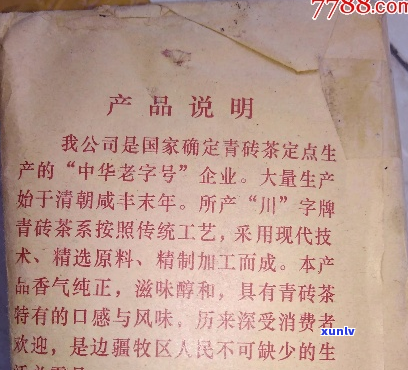 7788.com
产品说明
我公司是国家确定青砖茶定点生
产的“中华老字号”企业。大量生产
始于清朝咸丰末年。所产“川”字牌
青砖茶系按照传统工艺，采用现代技
术、精选原料、精制加工而成。本产
品香气纯正，滋味醇和，具有青砖茶
特有的口感与风味，历来深受消费者
欢迎，是边疆牧区人民不可缺少的生
xunlv